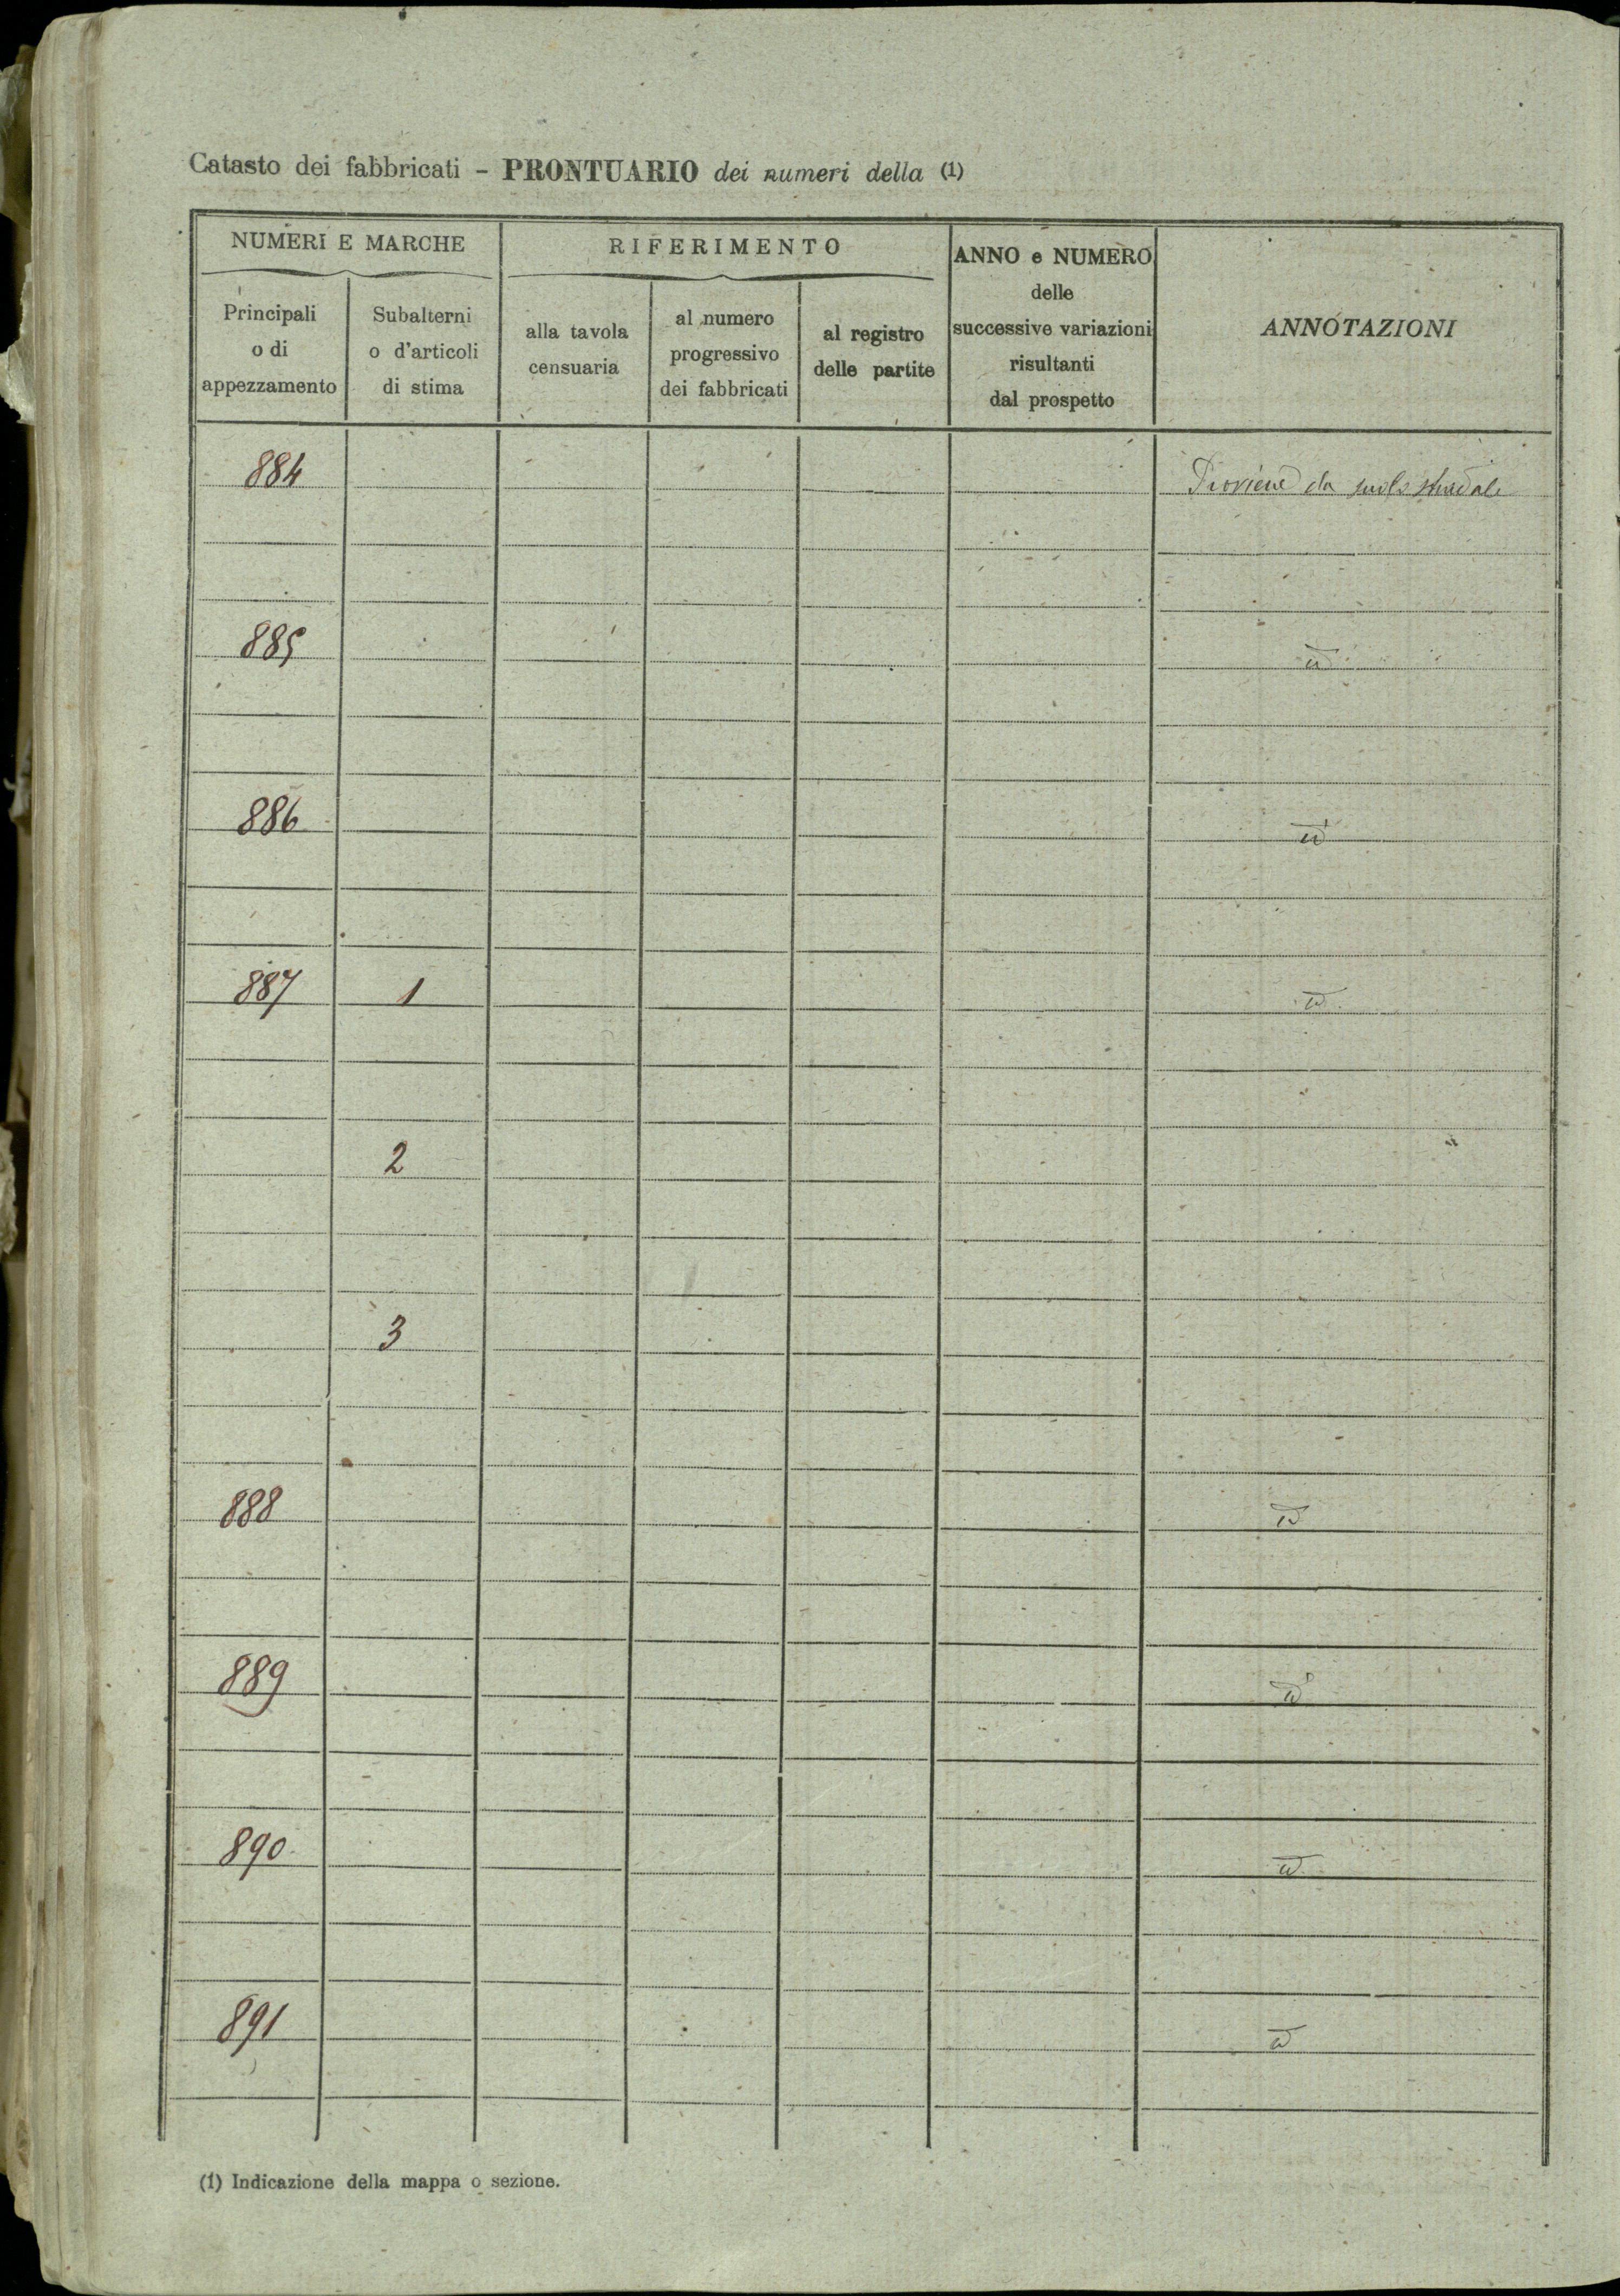 Catasto dei fabbricati - PRONTUARIO dei numeri della (1)
NUMERI E MARCHE
RIFERIMENTO
ANNO e NUMERO
delle
successive variazioni
risultanti
dal prospetto
ANNOTAZIONI
Principali
o di
appezzamento
Subalterni
o d'articoli
di stima
alla tavola
censuaria
al numero
progressivo
dei fabbricati
al registro
delle partite
884 Proviene da suolo stradale
885 id
886 id
887 1 id
2
3
888 id
889 id
890 id
891 id
(1) Indicazione della mappa o sezione.